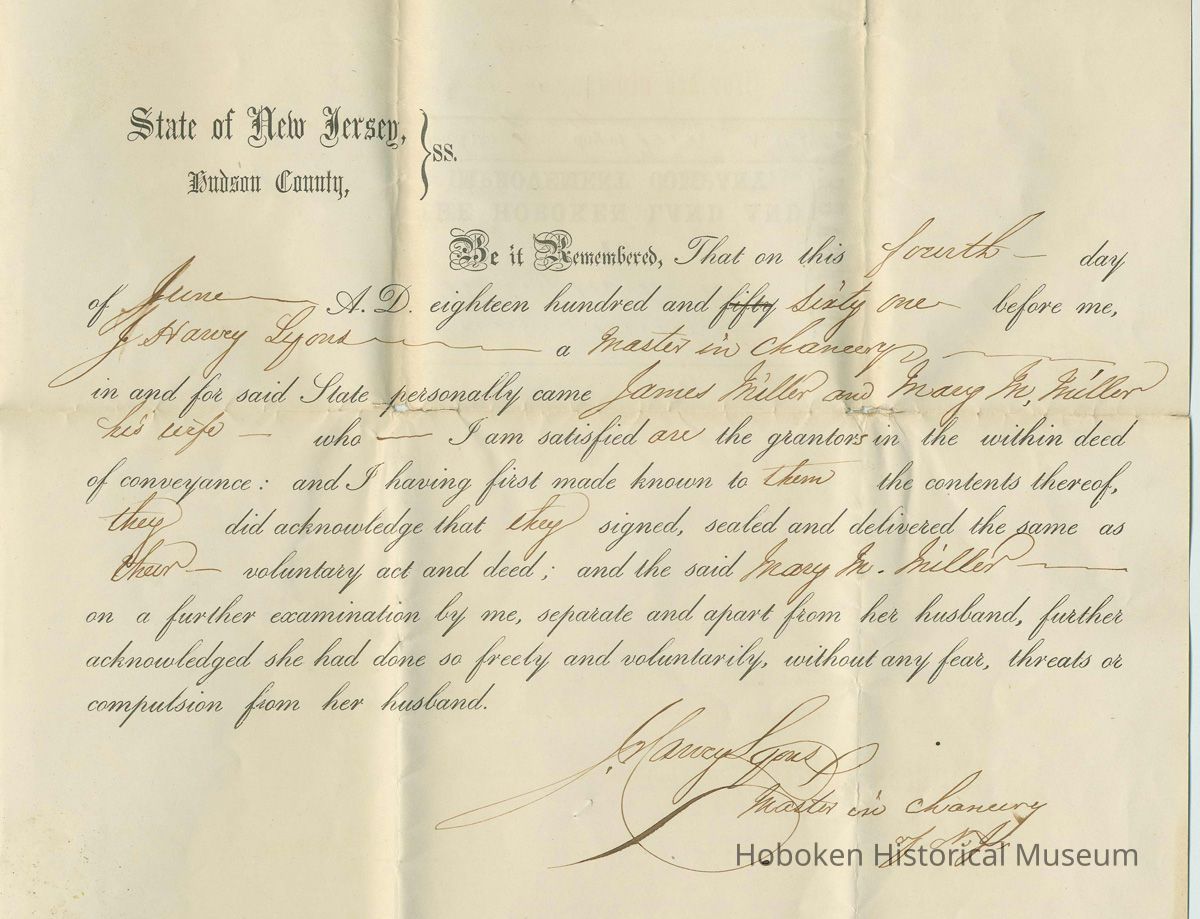 State of New Jersey,
Hudson County,
} ss.
Be it Remembered, That on this fourth — day
of June — A. D. eighteen hundred and fifty sixty one before me,
J Harvey Lyons — a Master in Chancery —
in and for said State personally came James Miller and Mary M. Miller
his wife — who — I am satisfied are the grantors in the within deed
of conveyance: and I having first made known to them the contents thereof,
they did acknowledge that they signed, sealed and delivered the same as
their — voluntary act and deed; and the said Mary M. Miller —
on a further examination by me, separate and apart from her husband, further
acknowledged she had done so freely and voluntarily, without any fear, threats or
compulsion from her husband.
J. Harvey Lyons
Master in Chancery
of N. J.
Hoboken Historical Museum